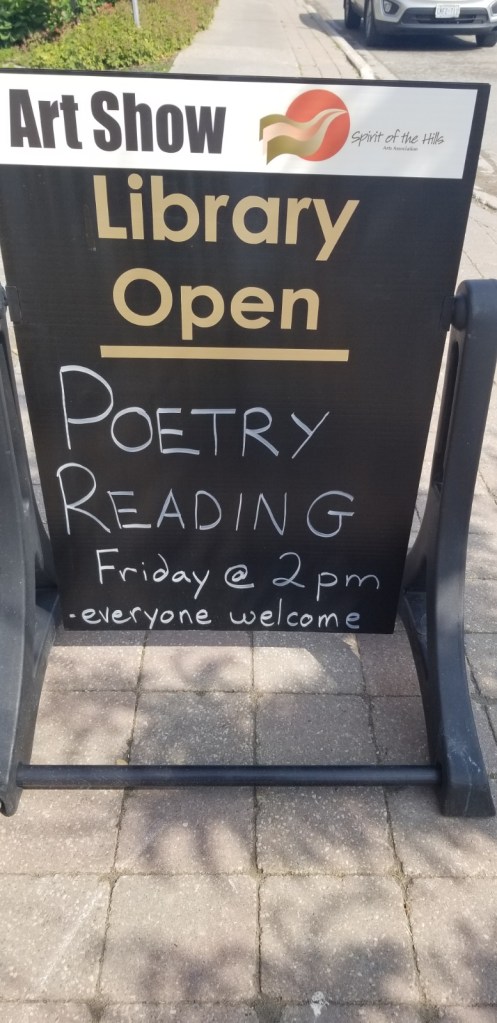 Art Show
Spirit of the Hills
Arts Association
Library
Open
POETRY
READING
Friday @ 2 pm
-everyone welcome